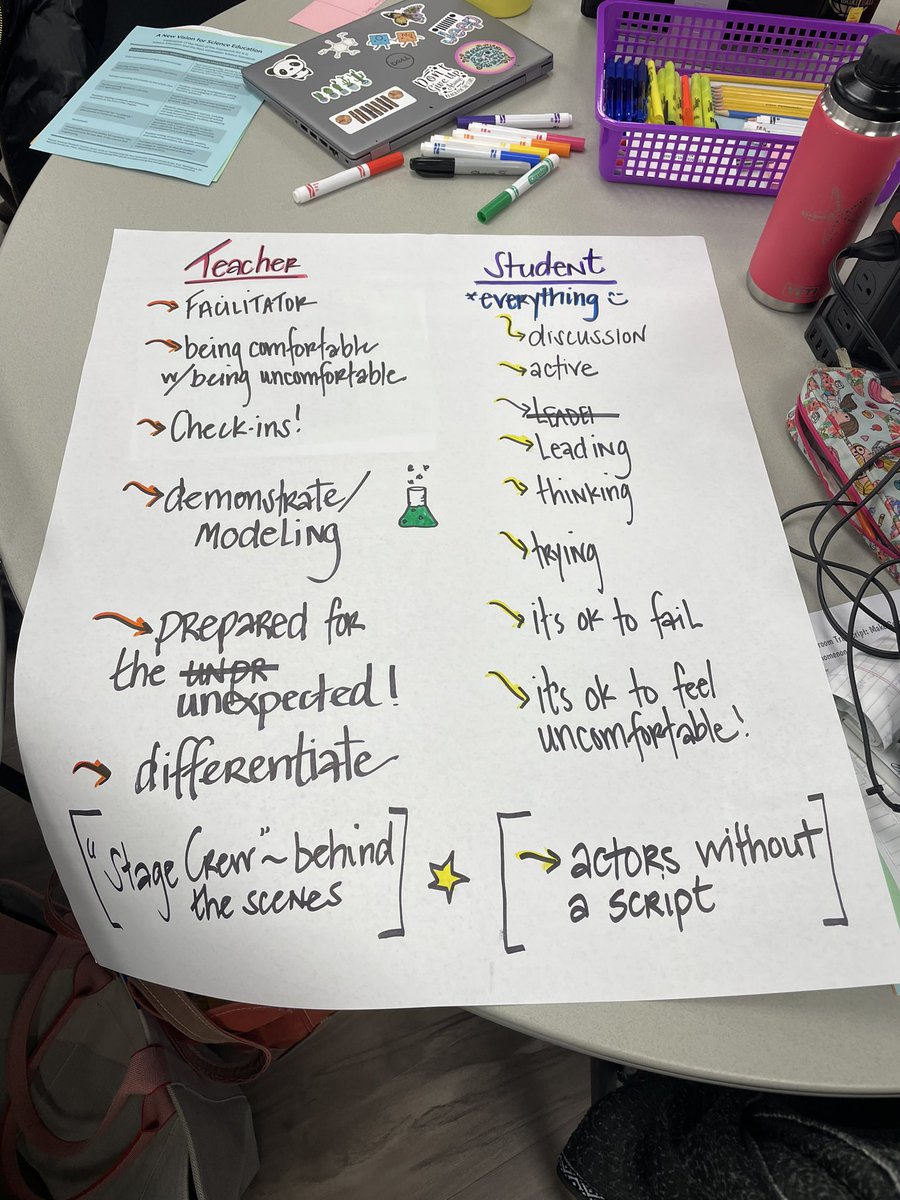 A New Vision for Science Education
DELL
Jeep
Don't
Give up
Teacher
FACILITATOR
being comfortable
w/being uncomfortable
Check-ins!
demonstrate/
Modeling
prepared for
the UNPR
unexpected!
differentiate
["Stage Crew" ~ behind
the scenes]
Student
*everything
discussion
active
LEADEI
Leading
thinking
trying
it's ok to fail
it's ok to feel
uncomfortable!
[actors without
a script]
YETI
room Transcript: Mak
nomenon